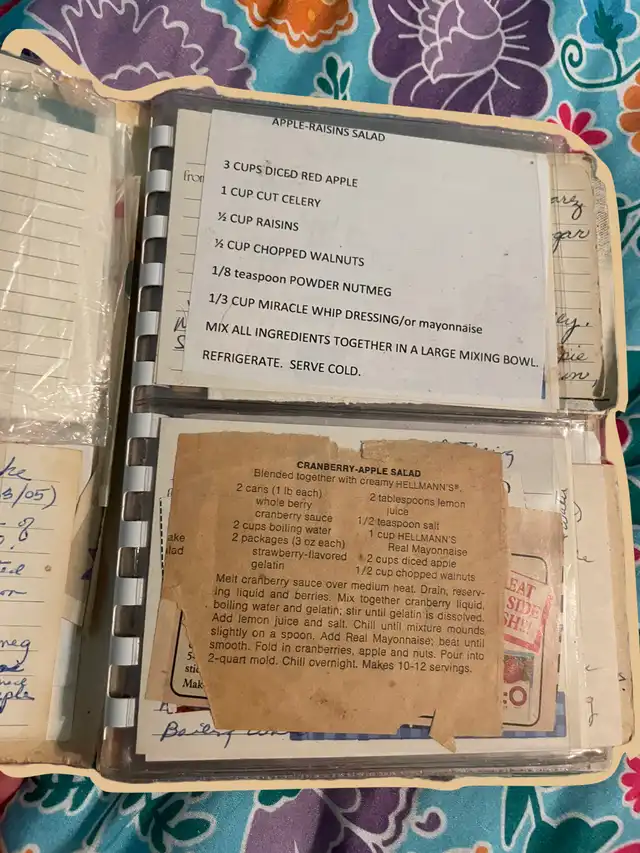 APPLE-RAISINS SALAD
3 CUPS DICED RED APPLE
1 CUP CUT CELERY
½ CUP RAISINS
½ CUP CHOPPED WALNUTS
1/8 teaspoon POWDER NUTMEG
1/3 CUP MIRACLE WHIP DRESSING/or mayonnaise
MIX ALL INGREDIENTS TOGETHER IN A LARGE MIXING BOWL.
REFRIGERATE. SERVE COLD.
CRANBERRY-APPLE SALAD
Blended together with creamy HELLMANN'S®.
2 cans (1 lb each)
whole berry
cranberry sauce
2 cups boiling water
2 packages (3 oz each)
strawberry-flavored
gelatin
2 tablespoons lemon
juice
1/2 teaspoon salt
1 cup HELLMANN'S
Real Mayonnaise
2 cups diced apple
1/2 cup chopped walnuts
Melt cranberry sauce over medium heat. Drain, reserv-
ing liquid and berries. Mix together cranberry liquid,
boiling water and gelatin; stir until gelatin is dissolved.
Add lemon juice and salt. Chill until mixture mounds
slightly on a spoon. Add Real Mayonnaise; beat until
smooth. Fold in cranberries, apple and nuts. Pour into
2-quart mold. Chill overnight. Makes 10-12 servings.
EAT
SIDE
5-
Mak
/05)
of
meg